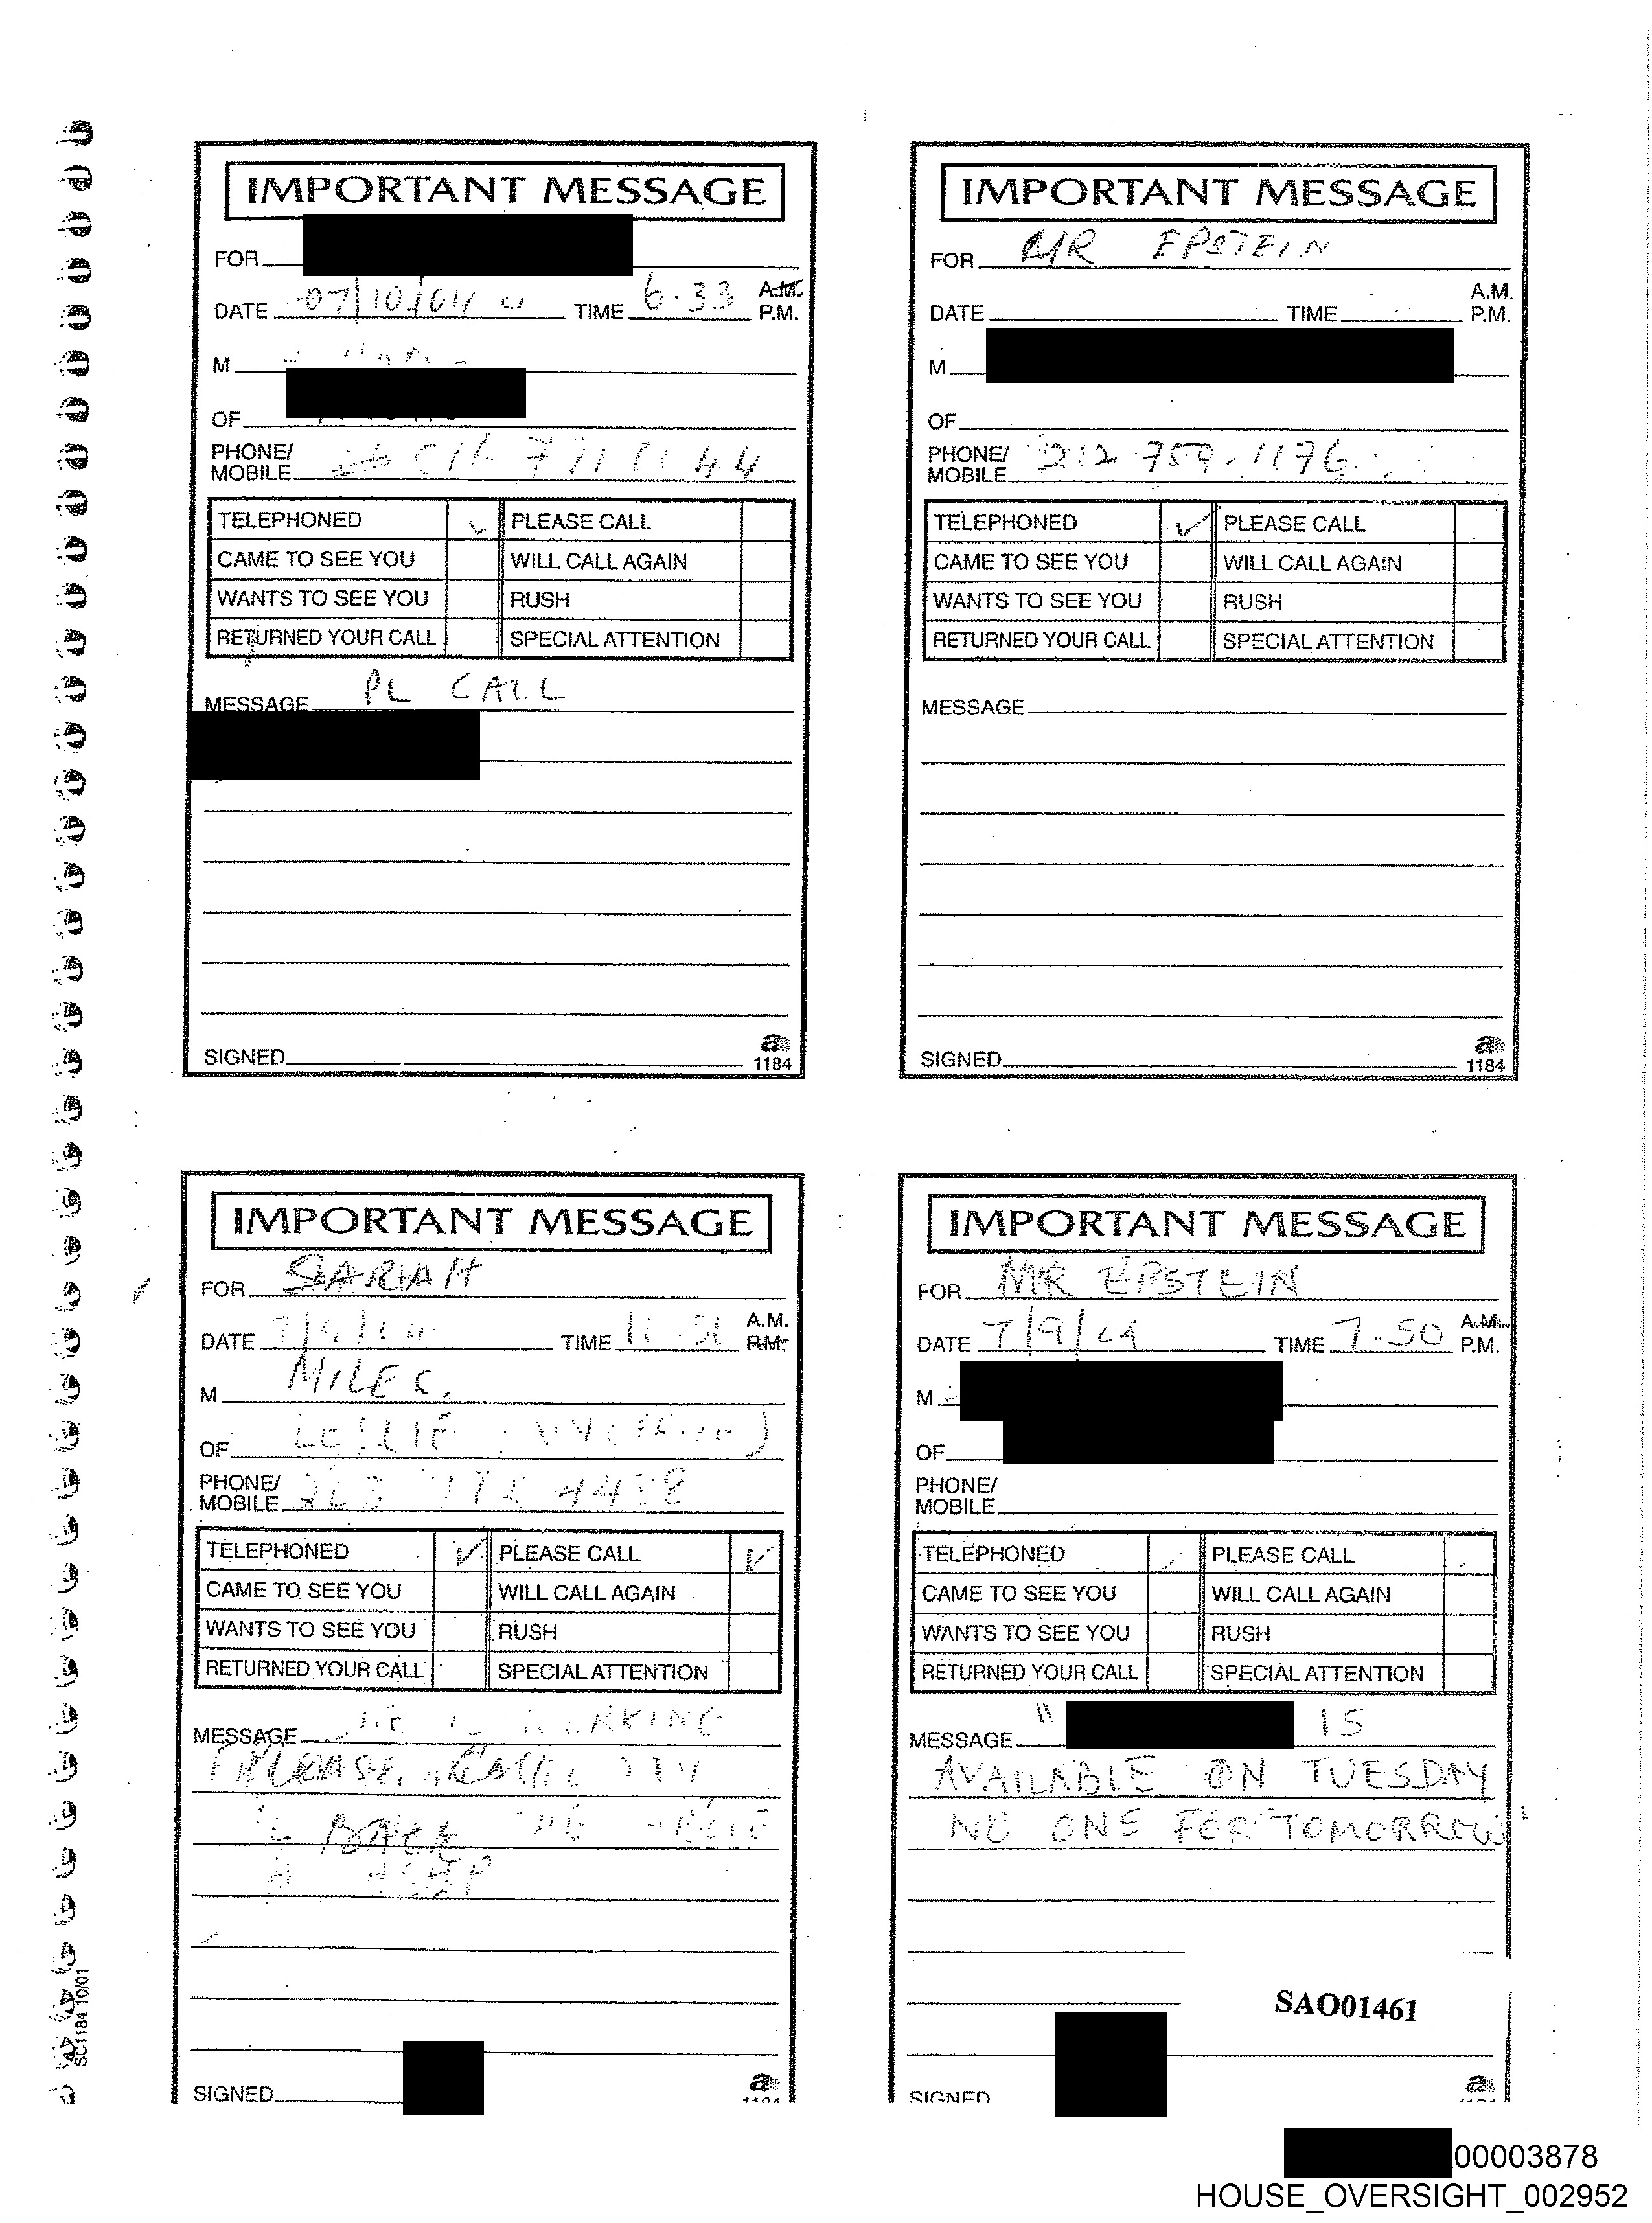 IMPORTANT MESSAGE
FOR
DATE 07/10/04 TIME 6.33 A.M. P.M.
M
OF
PHONE/
MOBILE 44
TELEPHONED ✓ PLEASE CALL
CAME TO SEE YOU WILL CALL AGAIN
WANTS TO SEE YOU RUSH
RETURNED YOUR CALL SPECIAL ATTENTION
MESSAGE PL CALL
SIGNED
a
1184
IMPORTANT MESSAGE
FOR MR EPSTEIN
DATE TIME A.M. P.M.
M
OF
PHONE/
MOBILE 212 759.1176
TELEPHONED ✓ PLEASE CALL
CAME TO SEE YOU WILL CALL AGAIN
WANTS TO SEE YOU RUSH
RETURNED YOUR CALL SPECIAL ATTENTION
MESSAGE
SIGNED
a
1184
IMPORTANT MESSAGE
FOR SARAH
DATE TIME A.M. P.M.
M MILES.
OF LESLIE
PHONE/
MOBILE
TELEPHONED ✓ PLEASE CALL ✓
CAME TO SEE YOU WILL CALL AGAIN
WANTS TO SEE YOU RUSH
RETURNED YOUR CALL SPECIAL ATTENTION
MESSAGE
PLEASE CALL
BACK
ASAP
SIGNED
a
SC1184 10/01
IMPORTANT MESSAGE
FOR MR EPSTEIN
DATE 7/9/04 TIME 7.50 A.M. P.M.
M
OF
PHONE/
MOBILE
TELEPHONED PLEASE CALL
CAME TO SEE YOU WILL CALL AGAIN
WANTS TO SEE YOU RUSH
RETURNED YOUR CALL SPECIAL ATTENTION
MESSAGE " IS
AVAILABLE ON TUESDAY
NO ONE FOR TOMORROW"
SAO01461
SIGNED
a
00003878
HOUSE_OVERSIGHT_002952